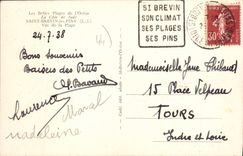 Les Belles Plages de l'Océan
La Côte de Jade
SAINT-BREVIN-les-PINS (L.-I.)
Vue de la Plage
24/7.38
Bons Souvenirs
Baisers des Petits
Laurence Marcel
madeleine
ST BREVIN
SON CLIMAT
SES PLAGES
SES PINS
Mademoiselle Jane Thibaud
15 Place Velpeau
TOURS
Indre et Loire